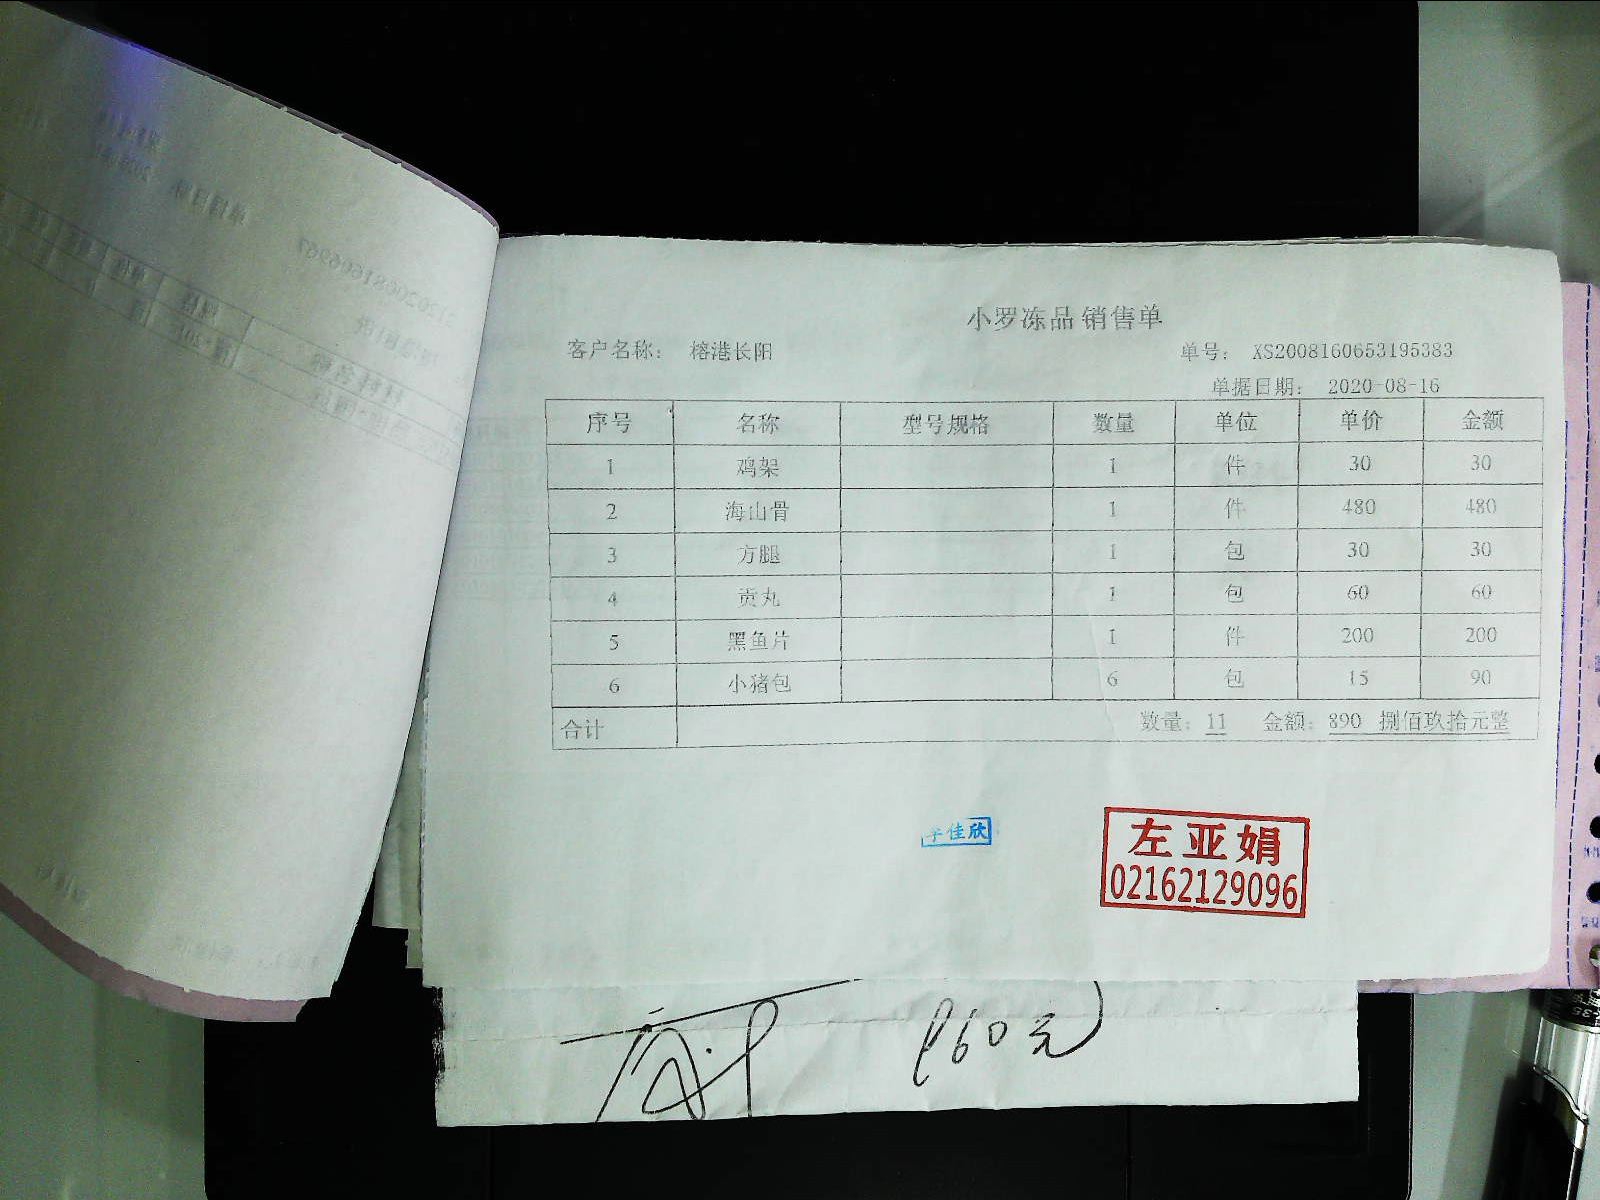 小罗冻品 销售单
客户名称： 榕港长阳 单号： XS2008160653195383
单据日期： 2020-08-16
序号 名称 型号规格 数量 单位 单价 金额
1 鸡架 1 件 30 30
2 海山骨 1 件 480 480
3 方腿 1 包 30 30
4 贡丸 1 包 60 60
5 黑鱼片 1 件 200 200
6 小猪包 6 包 15 90
合计 数量：11 金额：890 捌佰玖拾元整
佳欣
左亚娟
02162129096
60元